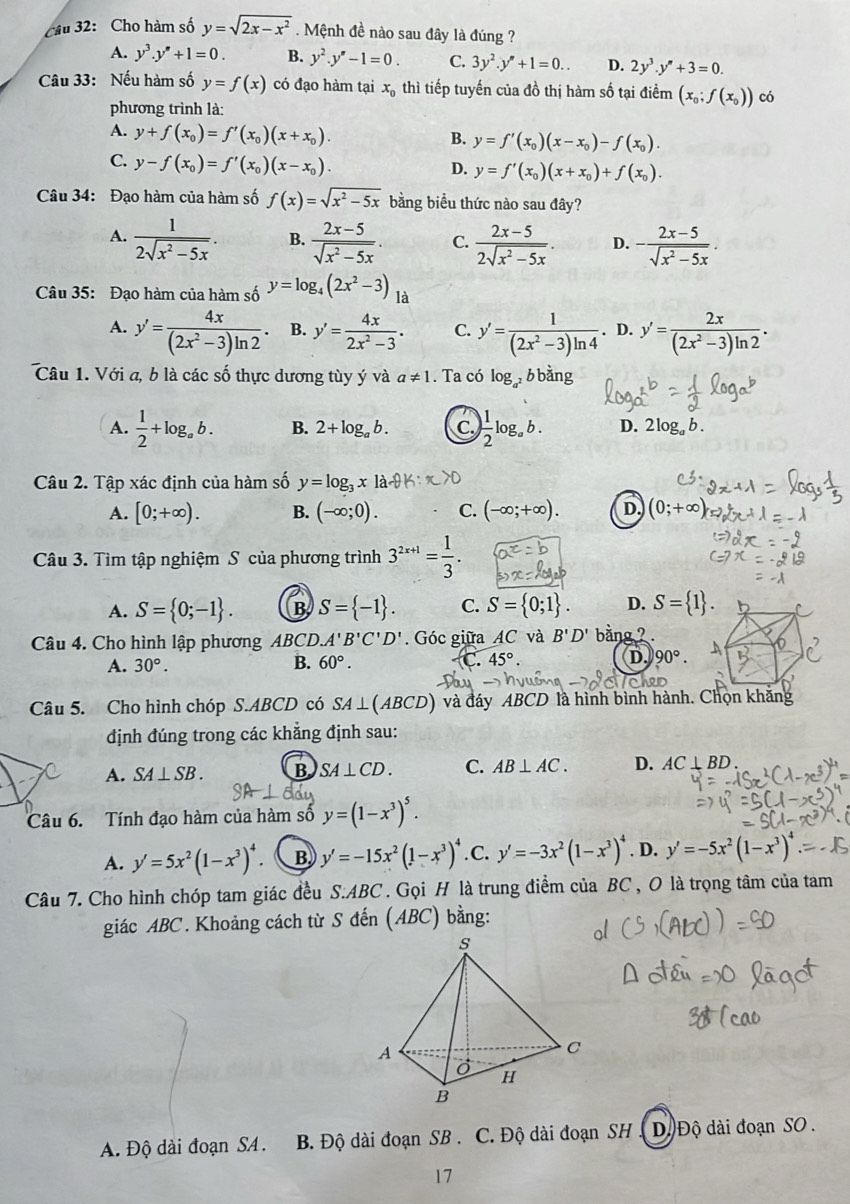 Câu 32: Cho hàm số $y=\sqrt{2x-x^2}$. Mệnh đề nào sau đây là đúng ?
A. $y^3.y''+1=0$. B. $y^2.y''-1=0$. C. $3y^2.y''+1=0$.. D. $2y^3.y''+3=0$.
Câu 33: Nếu hàm số $y=f(x)$ có đạo hàm tại $x_0$ thì tiếp tuyến của đồ thị hàm số tại điểm $(x_0;f(x_0))$ có
phương trình là:
A. $y+f(x_0)=f'(x_0)(x+x_0)$. B. $y=f'(x_0)(x-x_0)-f(x_0)$.
C. $y-f(x_0)=f'(x_0)(x-x_0)$. D. $y=f'(x_0)(x+x_0)+f(x_0)$.
Câu 34: Đạo hàm của hàm số $f(x)=\sqrt{x^2-5x}$ bằng biểu thức nào sau đây?
A. $\frac{1}{2\sqrt{x^2-5x}}$. B. $\frac{2x-5}{\sqrt{x^2-5x}}$. C. $\frac{2x-5}{2\sqrt{x^2-5x}}$. D. $-\frac{2x-5}{\sqrt{x^2-5x}}$.
Câu 35: Đạo hàm của hàm số $y=\log_4(2x^2-3)$ là
A. $y'=\frac{4x}{(2x^2-3)\ln 2}$. B. $y'=\frac{4x}{2x^2-3}$. C. $y'=\frac{1}{(2x^2-3)\ln 4}$. D. $y'=\frac{2x}{(2x^2-3)\ln 2}$.
Câu 1. Với a, b là các số thực dương tùy ý và $a\neq 1$. Ta có $\log_{a^2} b$ bằng
$\log_{a^2} b = \frac{1}{2}\log_a b$
A. $\frac{1}{2}+\log_a b$. B. $2+\log_a b$. C. $\frac{1}{2}\log_a b$. D. $2\log_a b$.
Câu 2. Tập xác định của hàm số $y=\log_3 x$ là ĐK: x>0
A. $[0;+\infty)$. B. $(-\infty;0)$. C. $(-\infty;+\infty)$. D. $(0;+\infty)$
C3: $2x+1=\log_3\frac{1}{3}$
⇔ 2x+1 = -1
⇔ 2x = -2
⇔ x = -2:2
= -1
Câu 3. Tìm tập nghiệm S của phương trình $3^{2x+1}=\frac{1}{3}$.
$a^x=b$
⇔ $x=\log_a b$
A. $S=\{0;-1\}$. B. $S=\{-1\}$. C. $S=\{0;1\}$. D. $S=\{1\}$.
Câu 4. Cho hình lập phương ABCD.A'B'C'D'. Góc giữa AC và B'D' bằng ? .
A. 30°. B. 60°. C. 45°. D. 90°.
Đáy → hvuông → 2 đ/chéo
D C A B' C' A' D'
Câu 5. Cho hình chóp S.ABCD có $SA\perp(ABCD)$ và đáy ABCD là hình bình hành. Chọn khẳng
định đúng trong các khẳng định sau:
A. $SA\perp SB$. B. $SA\perp CD$. C. $AB\perp AC$. D. $AC\perp BD$.
SA ⊥ đáy
C
D
Câu 6. Tính đạo hàm của hàm số $y=(1-x^3)^5$.
$y'=-15x^2(1-x^3)^4$ =
⇒ $y'=5(1-x^3)^4$
= $5(1-x^3)^4$.
A. $y'=5x^2(1-x^3)^4$. B. $y'=-15x^2(1-x^3)^4$. C. $y'=-3x^2(1-x^3)^4$. D. $y'=-5x^2(1-x^3)^4$. = -15
Câu 7. Cho hình chóp tam giác đều S.ABC. Gọi H là trung điểm của BC, O là trọng tâm của tam
giác ABC. Khoảng cách từ S đến (ABC) bằng:
d(S,(ABC)) = SO
Δ đều ⇒ O là gđ
3 đ/cao
S
A
C
O
H
B
A. Độ dài đoạn SA. B. Độ dài đoạn SB. C. Độ dài đoạn SH. D. Độ dài đoạn SO.
17